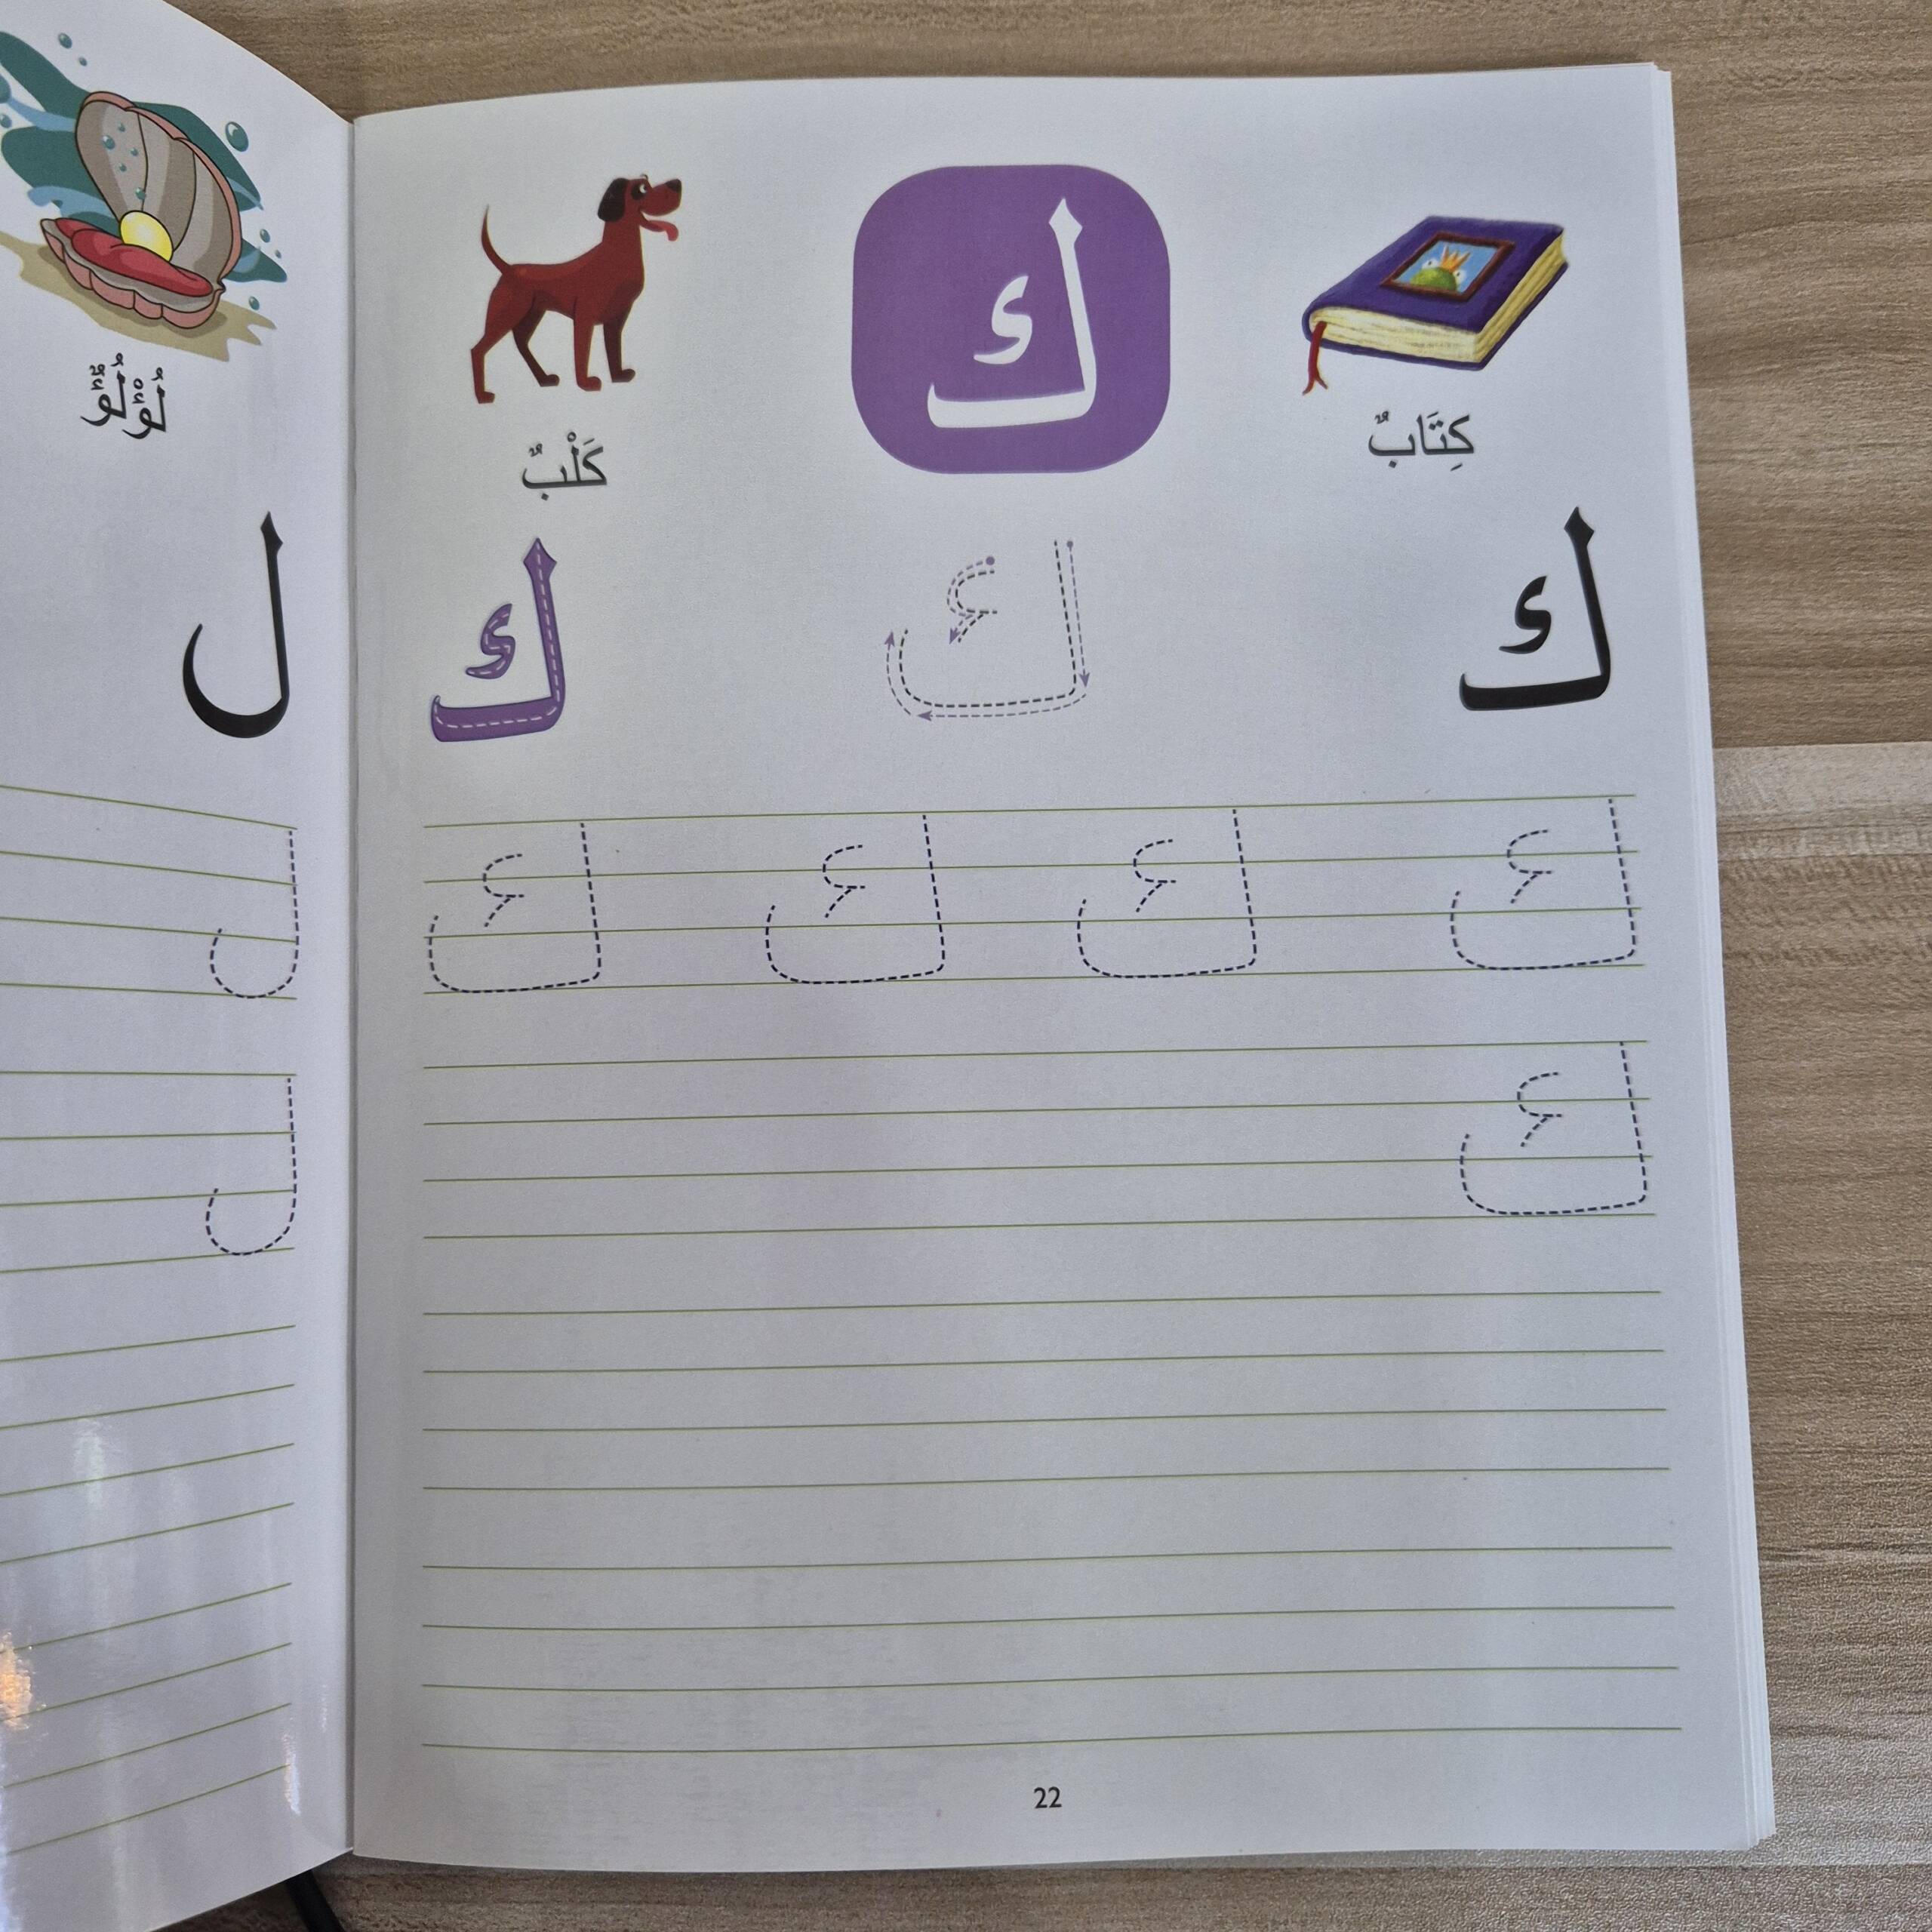 ك
كِتَابٌ
كَلْبٌ
ك ك ك
ك ك ك ك
ك
22
لُؤْلُؤٌ
ل
ل
ل